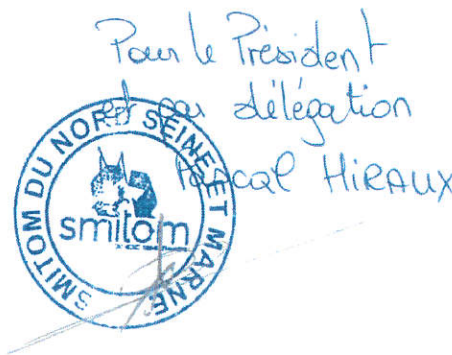 Pour le Président
et par délégation
Pascal HIRAUX
SMITOM DU NORD SEINE ET MARNE
smitom